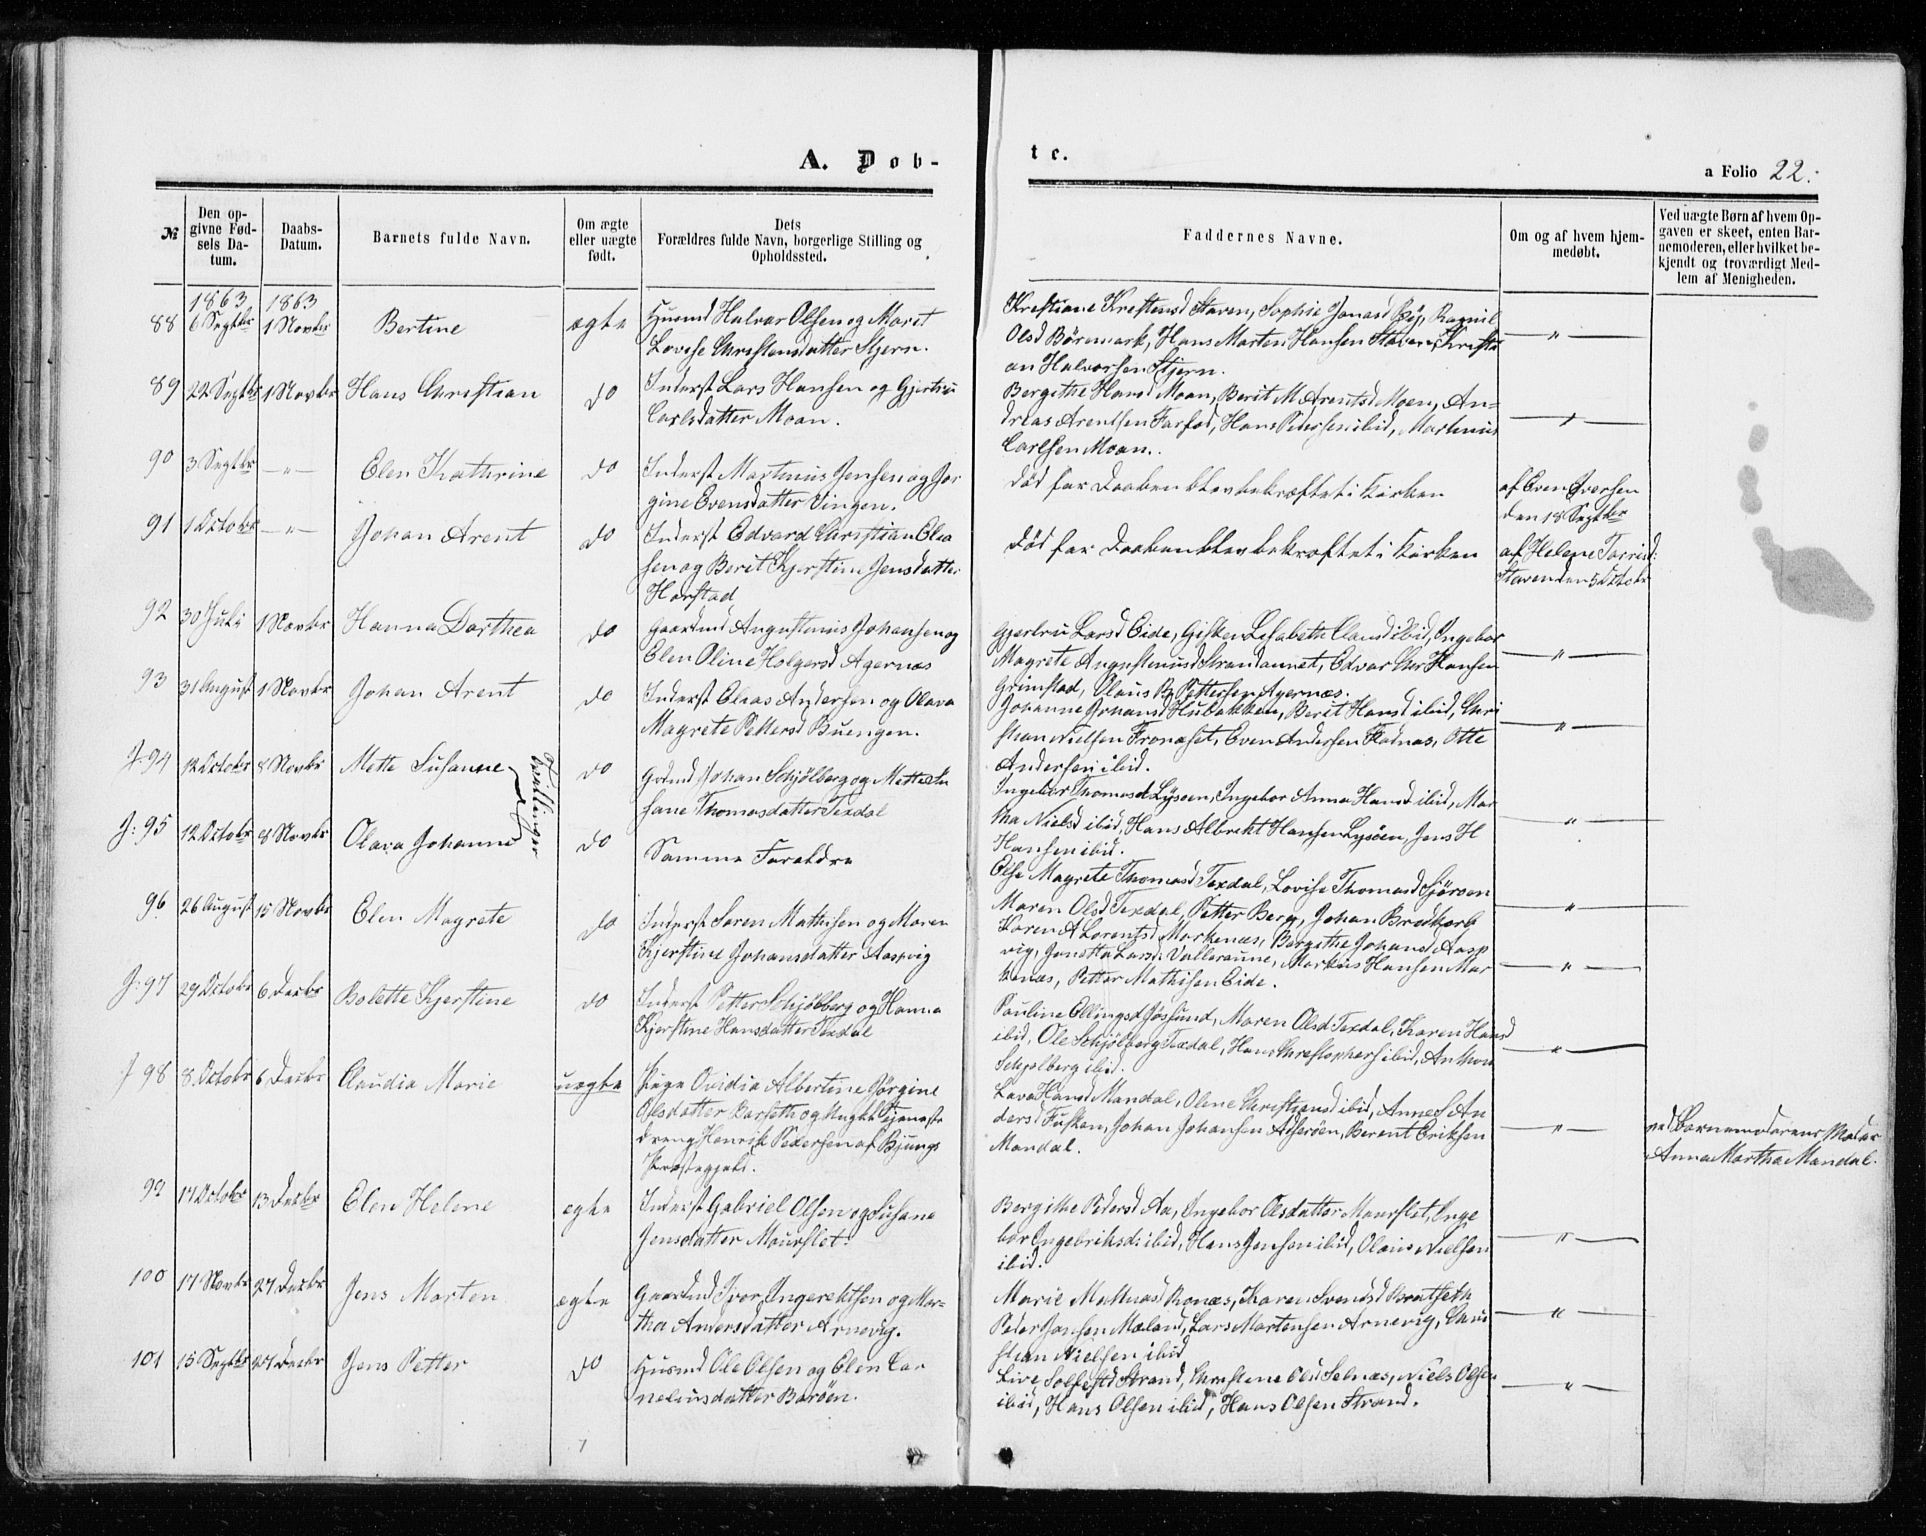 A. Døb-
te.
a Folio 22.
№
Den op-
givne Fød-
sels Da-
tum.
Daabs-
Datum.
Barnets fulde Navn.
Om ægte
eller uægte
født.
Dets
Forældres fulde Navn, borgerlige Stilling og
Opholdssted.
Faddernes Navne.
Om og af hvem hjem-
medøbt.
Ved uægte Børn af hvem Op-
gaven er skeet, enten Bar-
nemoderen, eller hvilket be-
kjendt og troværdigt Med-
lem af Menigheden.
1863 1863
88 6 Septbr 1 Novbr Bertine ægte Husmd Halvor Olsen og Marit
Lovise Christensdatter Stjern.
Kristiane Kristensd Staven, Sophie Jonasd Bøj, Ragnil
Olsd Børemark, Hans Morten Hansen Staven, Kristi
an Halvorsen Stjern. — " —
89 22 Septbr 1 Novbr Hans Christian do Inderst Lars Hansen og Gjertru
Carlsdatter Moan.
Bergithe Hansd Moan, Berit M Arentsd Moen, An-
dreas Arentsen Farstad, Hans Pedersen ibid, Martinus
Carlsen Moan. — " —
90 3 Septbr — " — Elen Kathrine do Inderst Martinus Jensen og Jør
gine Evensdatter Vingen.
død før Daaben blev bekræftet i Kirken
af Even Iversen
den 18 Septbr
91 1 Octobr — " — Johan Arent do Inderst Edvard Christian Elia
sen og Berit Kjerstine Jensdatter
Harstad
død før Daaben blev bekræftet i Kirken
af Helene Torrisd:
Staven den 5 Octobr
92 30 Juli 1 Novbr Hanna Dorthea do Gaardmd Augustinus Johansen og
Elen Oline Holgersd Agernæs
Gjertru Larsd Eide, Gisken Lisabeth Clausd ibid, Ingebor
Magrete Augustinusd Strandannet, Edvar Chr Hansen
Grimstad, Olaus B Pettersen Agernæs. — " —
93 31 August 1 Novbr Johan Arent do Inderst Elias Andersen og Olava
Magrete Pettersd Buengen.
Johanne Johansd Hubakken, Berit Hansd ibid, Chri
stian Nielsen Fronæset, Even Andersen Flatnæs, Otte
Andersen ibid. — " —
J: 94 12 Octobr 8 Novbr Mette Susanne do Grdmd Johan Schjølberg og Mette Su
sane Thomasdatter Texdal
Tvillinger
Ingebor Thomasd Lysøen, Ingebor Anna Hansd ibid, Mar
tha Nielsd ibid, Hans Albrikt Hansen Lysøen, Jens H
Hansen ibid. — " —
J: 95 12 Octobr 8 Novbr Olava Johanne do Samme Forældre
Else Magrete Thomasd Texdal, Lovise Thomasd Sjørsen
Maren Olsd Texdal, Petter Berg, Johan Brækberg — " —
96 26 August 15 Novbr Elen Magrete do Inderst Søren Mathisen og Maren
Kjerstine Johansdatter Aasvig
Karen A Lorentsd Markenæs, Bergithe Johansd Aasp
vig, Jonetta Larsd: Valleraune, Markus Hansen Mar
kenæs, Petter Mathisen Eide. — " —
J: 97 29 Octobr 6 Decbr Bolette Kjerstine do Inderst Petter Schjølberg og Hanna
Kjerstine Hansdatter Texdal
Pauline Ellingsd Jøssund, Maren Olsd Texdal, Karen Hansd
ibid, Ole Schjølberg Texdal, Hans Christophers ibid, Anthon
Schjølberg ibid. — " —
J 98 8. Octobr 6 Decbr Claudia Marie uægte Pige Ovidia Albertine Jørgine
Olsdatter Barseth og Ungkl Tjeneste
dreng Henrik Pedersen af Bjungs
Præstegjeld.
Lava Hansd Mandal, Olene Christiansd ibid, Anne S An
dersd Fusken, Johan Johansen Asserøen, Berent Eriksen
Mandal. — " —
ved Barnemoderens Moder
Anna Martha Mandal.
99 17 Octobr 13 Decbr Elen Helene ægte Inderst Gabriel Olsen og Susana
Jensdatter Mourslet.
Bergithe Pedersd Aa, Ingebor Olsdatter Mourslet, Inge
bor Ingebriksd: ibid, Hans Jensen ibid, Olaus Nielsen
ibid. — " —
100 17 Novbr 27 Decbr Jens Morten ægte Gaardmd Iver Ingerektsen og Mar-
tha Andersdatter Arnevig.
Marie Mathiasd Ronæs, Karen Svendsd Brætseth
Peder Jansen Mæland, Lars Mortensen Arnevig, Chri
stian Nielsen ibid — " —
101 15 Septbr 27 Decbr Jens Petter do Husmd Ole Olsen og Elen Cor
neliusdatter Barøen.
Live Solfestd Strand, Christene Olsd Selnæs, Niels Olsen
ibid, Hans Olsen ibid, Hans Olsen Strand. — " —